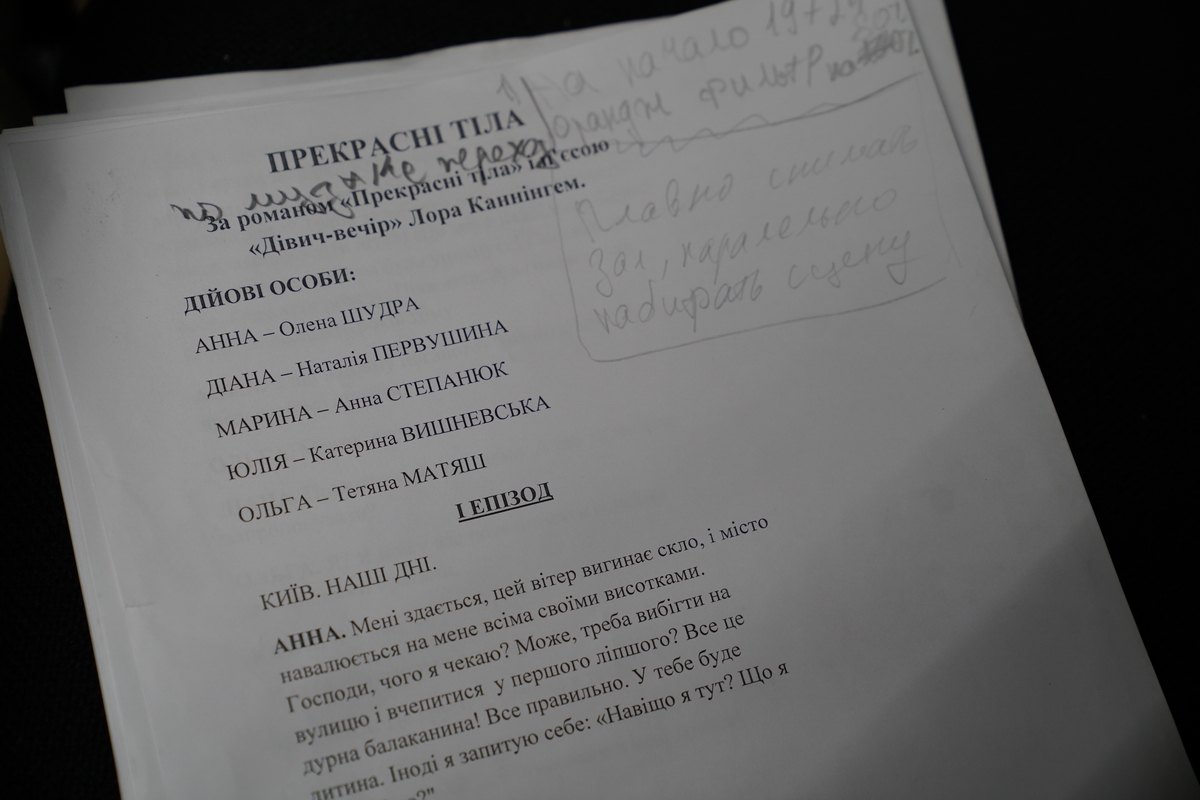 на начало 19+24
орандж фильтр на 80%
ПРЕКРАСНІ ТІЛА
по музыке переход
За романом «Прекрасні тіла» і п'єсою
«Дівич-вечір» Лора Каннінгем.
Плавно снимать
зал, паралельно
набирать сцену
ДІЙОВІ ОСОБИ:
АННА – Олена ШУДРА
ДІАНА – Наталія ПЕРВУШИНА
МАРИНА – Анна СТЕПАНЮК
ЮЛІЯ – Катерина ВИШНЕВСЬКА
ОЛЬГА – Тетяна МАТЯШ
І ЕПІЗОД
КИЇВ. НАШІ ДНІ.
АННА. Мені здається, цей вітер вигинає скло, і місто
навалюється на мене всіма своїми висотками.
Господи, чого я чекаю? Може, треба вибігти на
вулицю і вчепитися у першого ліпшого? Все це
дурна балаканина! Все правильно. У тебе буде
дитина. Іноді я запитую себе: «Навіщо я тут? Що я